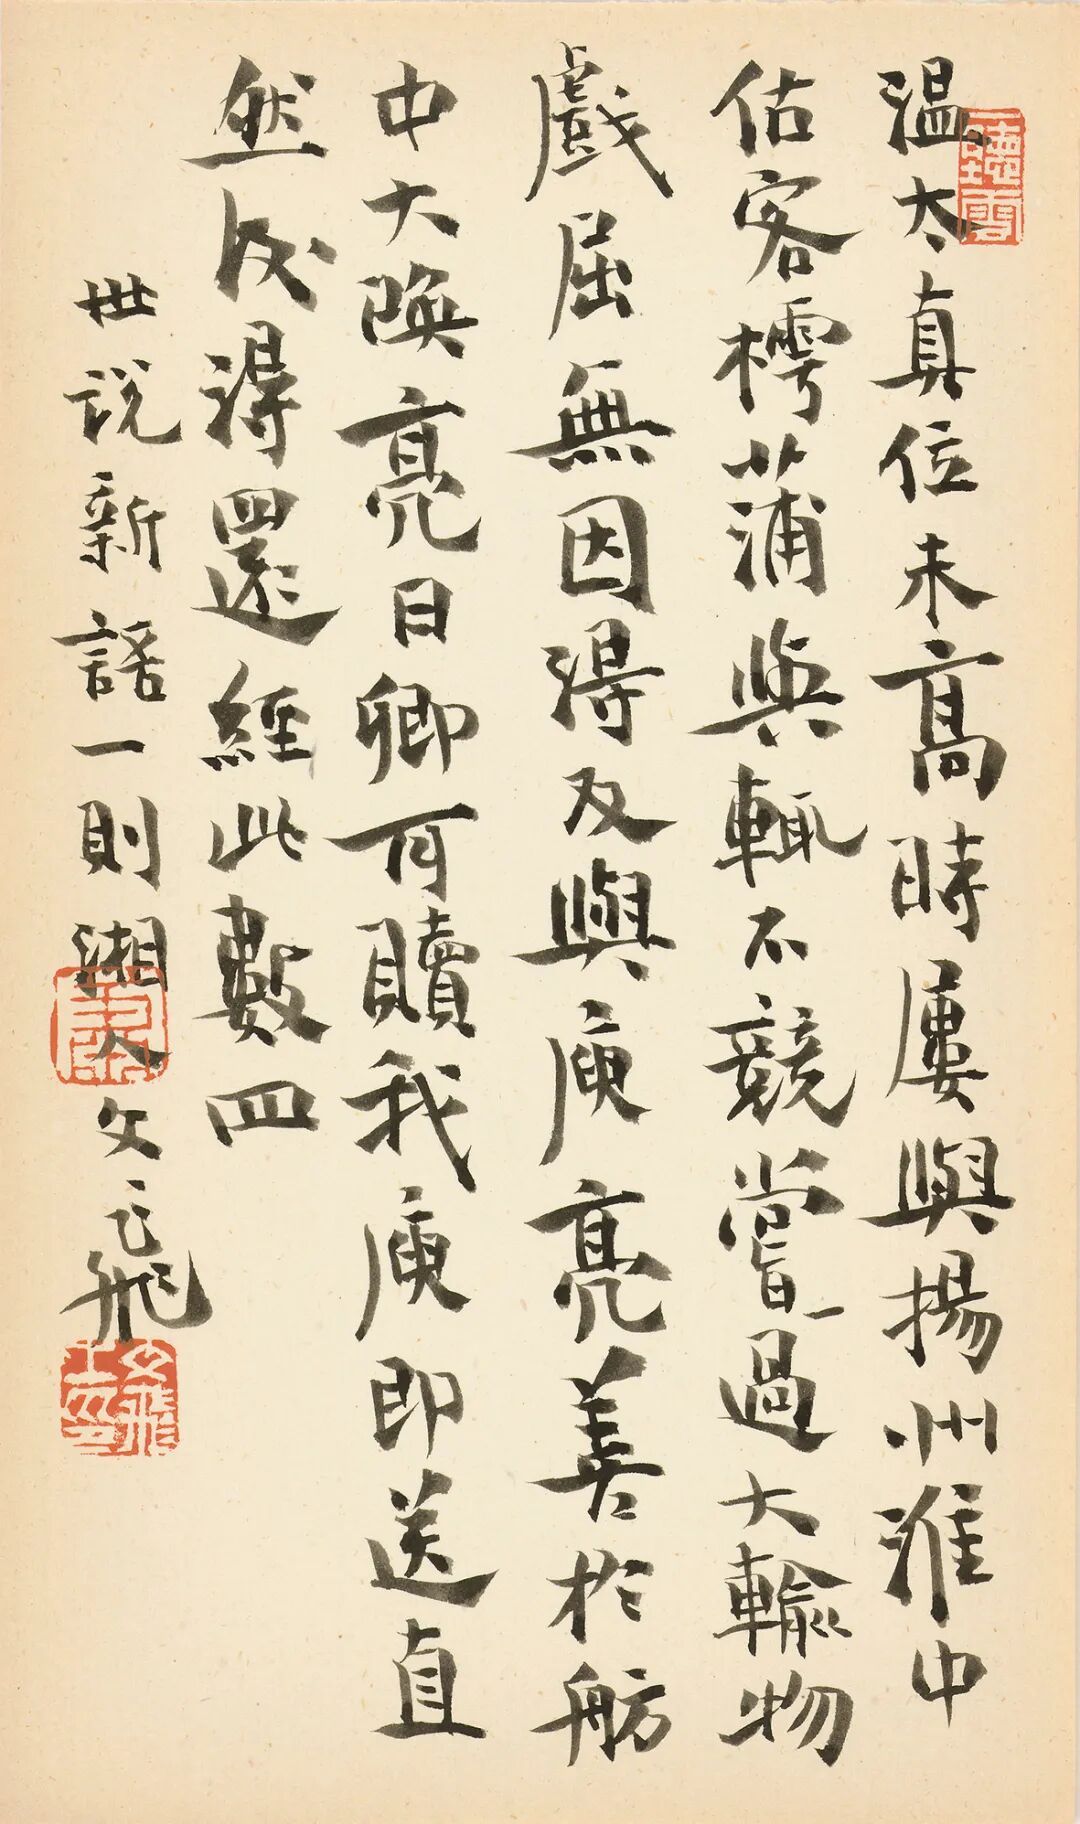 温太真位未高時屢與揚州淮中
估客樗蒲與輒不競嘗一過大輸物
戲屈無因得反與庾亮善於舫
中大喚亮曰卿可贖我庾即送直
然後得還經此數四
世說新語一則湘人文飛